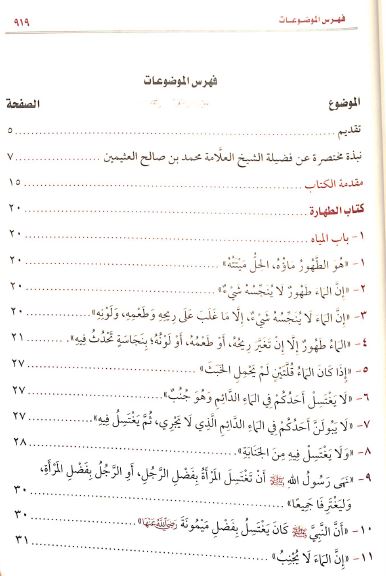 فهرس الموضوعات ٩١٩
فهرس الموضوعات
الموضوع الصفحة
تقديم ٥
نبذة مختصرة عن فضيلة الشيخ العلّامة محمد بن صالح العثيمين ٧
مقدمة الكتاب ١٥
كتاب الطهارة ٢٠
١- باب المياه ٢٠
١- «هُوَ الطَّهُورُ مَاؤُهُ، الحِلُّ مَيْتَتُهُ» ٢٠
٢- «إِنَّ المَاءَ طَهُورٌ لَا يُنَجِّسُهُ شَيْءٌ» ٢٠
٣- «إِنَّ المَاءَ لَا يُنَجِّسُهُ شَيْءٌ، إِلَّا مَا غَلَبَ عَلَى رِيحِهِ وَطَعْمِهِ، وَلَوْنِهِ» ٢٠
٤- «المَاءُ طَهُورٌ إِلَّا إِنْ تَغَيَّرَ رِيحُهُ، أَوْ طَعْمُهُ، أَوْ لَوْنُهُ؛ بِنَجَاسَةٍ تَحْدُثُ فِيهِ» ٢١
٥- «إِذَا كَانَ المَاءُ قُلَّتَيْنِ لَمْ يَحْمِلِ الخَبَثَ» ٢٧
٦- «لَا يَغْتَسِلُ أَحَدُكُمْ فِي المَاءِ الدَّائِمِ وَهُوَ جُنُبٌ» ٢٧
٧- «لَا يَبُولَنَّ أَحَدُكُمْ فِي المَاءِ الدَّائِمِ الَّذِي لَا يَجْرِي، ثُمَّ يَغْتَسِلُ فِيهِ» ٢٧
٨- «وَلَا يَغْتَسِلُ فِيهِ مِنَ الجَنَابَةِ» ٢٨
٩- «نَهَى رَسُولُ اللهِ ﷺ أَنْ تَغْتَسِلَ المَرْأَةُ بِفَضْلِ الرَّجُلِ، أَوِ الرَّجُلُ بِفَضْلِ المَرْأَةِ،
وَلْيَغْتَرِفَا جَمِيعًا» ٣٠
١٠- «أَنَّ النَّبِيَّ ﷺ كَانَ يَغْتَسِلُ بِفَضْلِ مَيْمُونَةَ رَضِيَ اللهُ عَنْهَا» ٣٠
١١- «إِنَّ المَاءَ لَا يُجْنِبُ» ٣١